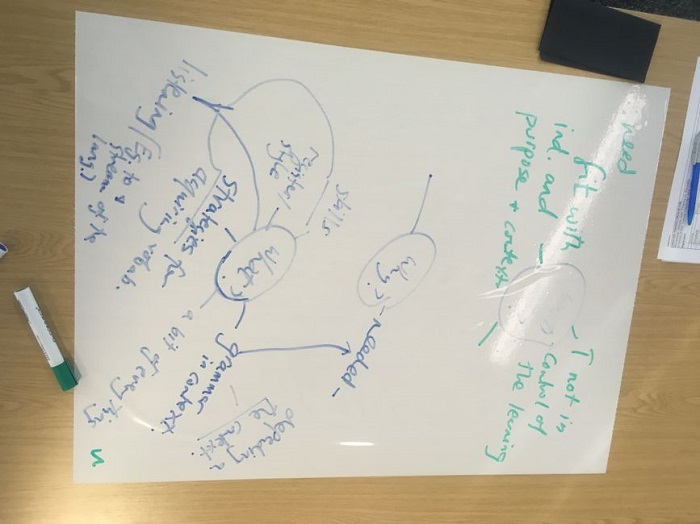 need
fit with
ind. and
purpose + context
- T not in
control of
the learning
Why?
- needed -
skills
register/
style
What?
strategies for
aquiring vocab.
listening (Eg. to a
stream of the
lang.)
grammer
in context.
a bit of everything
depending on
the context.